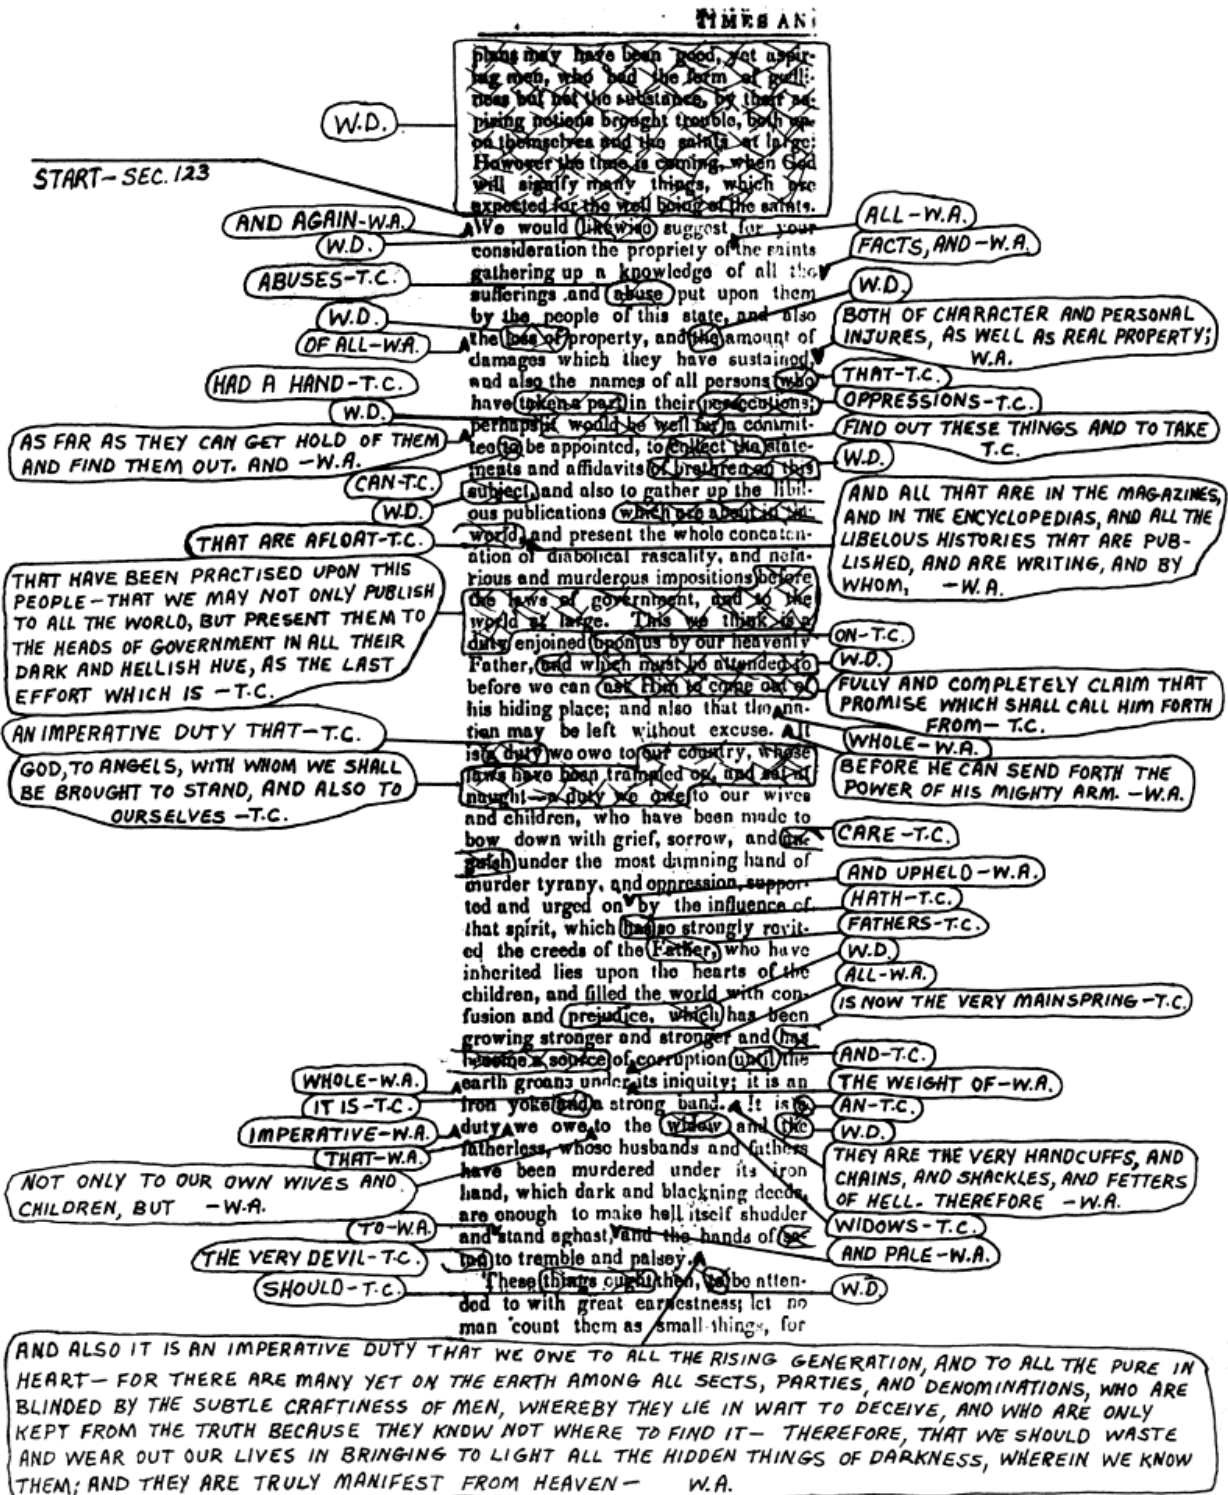 TIMES AN
plans may have been good, yet aspir-
ing men, who had the form of godli-
ness but not the substance, by their as-
piring notions brought trouble, both up-
on themselves and the saints at large:
However the time is coming, when God
will signify many things, which are
expected for the well being of the saints.
We would likewise suggest for your
consideration the propriety of the saints
gathering up a knowledge of all the
sufferings and abuse put upon them
by the people of this state, and also
the loss of property, and the amount of
damages which they have sustained,
and also the names of all persons who
have taken a part in their persecutions;
perhaps it would be well for a commit-
tee to be appointed, to collect the state-
ments and affidavits of brethren on this
subject, and also to gather up the libil-
ous publications which are about in the
world, and present the whole concaten-
ation of diabolical rascality, and nefa-
rious and murderous impositions before
the laws of government, and to the
world at large. This we think is a
duty enjoined upon us by our heavenly
Father, and which must be attended to
before we can ask Him to come out of
his hiding place; and also that the na-
tion may be left without excuse. It
is a duty we owe to our country, whose
laws have been trampled on, and set at
naught—a duty we owe to our wives
and children, who have been made to
bow down with grief, sorrow, and an-
guish under the most damning hand of
murder tyranny, and oppression, suppor-
ted and urged on by the influence of
that spirit, which has so strongly rivit-
ed the creeds of the Father, who have
inherited lies upon the hearts of the
children, and filled the world with con-
fusion and prejudice, which has been
growing stronger and stronger and has
become a source of corruption until the
earth groans under its iniquity; it is an
iron yoke and a strong band. It is a
duty we owe to the widow and the
fatherless, whose husbands and fathers
have been murdered under its iron
hand, which dark and blackning deeds,
are enough to make hell itself shudder
and stand aghast, and the hands of sa-
tan to tremble and palsey.
These things ought then, to be atten-
ded to with great earnestness; let no
man count them as small things, for
W.D.
START-SEC. 123
AND AGAIN-W.A.
W.D.
ABUSES-T.C.
W.D.
OF ALL-W.A.
HAD A HAND-T.C.
W.D.
AS FAR AS THEY CAN GET HOLD OF THEM
AND FIND THEM OUT. AND -W.A.
CAN-T.C.
W.D.
THAT ARE AFLOAT-T.C.
THAT HAVE BEEN PRACTISED UPON THIS
PEOPLE-THAT WE MAY NOT ONLY PUBLISH
TO ALL THE WORLD, BUT PRESENT THEM TO
THE HEADS OF GOVERNMENT IN ALL THEIR
DARK AND HELLISH HUE, AS THE LAST
EFFORT WHICH IS -T.C.
AN IMPERATIVE DUTY THAT-T.C.
GOD, TO ANGELS, WITH WHOM WE SHALL
BE BROUGHT TO STAND, AND ALSO TO
OURSELVES -T.C.
WHOLE-W.A.
IT IS-T.C.
IMPERATIVE-W.A.
THAT-W.A.
NOT ONLY TO OUR OWN WIVES AND
CHILDREN, BUT -W.A.
TO-W.A.
THE VERY DEVIL-T.C.
SHOULD-T.C.
ALL-W.A.
FACTS, AND-W.A.
W.D.
BOTH OF CHARACTER AND PERSONAL
INJURES, AS WELL AS REAL PROPERTY;
W.A.
THAT-T.C.
OPPRESSIONS-T.C.
FIND OUT THESE THINGS AND TO TAKE
T.C.
W.D.
AND ALL THAT ARE IN THE MAGAZINES,
AND IN THE ENCYCLOPEDIAS, AND ALL THE
LIBELOUS HISTORIES THAT ARE PUB-
LISHED, AND ARE WRITING, AND BY
WHOM, -W.A.
ON-T.C.
W.D.
FULLY AND COMPLETELY CLAIM THAT
PROMISE WHICH SHALL CALL HIM FORTH
FROM- T.C.
WHOLE-W.A.
BEFORE HE CAN SEND FORTH THE
POWER OF HIS MIGHTY ARM. -W.A.
CARE-T.C.
AND UPHELD-W.A.
HATH-T.C.
FATHERS-T.C.
W.D.
ALL-W.A.
IS NOW THE VERY MAINSPRING-T.C.
AND-T.C.
THE WEIGHT OF-W.A.
AN-T.C.
W.D.
THEY ARE THE VERY HANDCUFFS, AND
CHAINS, AND SHACKLES, AND FETTERS
OF HELL. THEREFORE -W.A.
WIDOWS-T.C.
AND PALE-W.A.
W.D.
AND ALSO IT IS AN IMPERATIVE DUTY THAT WE OWE TO ALL THE RISING GENERATION, AND TO ALL THE PURE IN
HEART- FOR THERE ARE MANY YET ON THE EARTH AMONG ALL SECTS, PARTIES, AND DENOMINATIONS, WHO ARE
BLINDED BY THE SUBTLE CRAFTINESS OF MEN, WHEREBY THEY LIE IN WAIT TO DECEIVE, AND WHO ARE ONLY
KEPT FROM THE TRUTH BECAUSE THEY KNOW NOT WHERE TO FIND IT- THEREFORE, THAT WE SHOULD WASTE
AND WEAR OUT OUR LIVES IN BRINGING TO LIGHT ALL THE HIDDEN THINGS OF DARKNESS, WHEREIN WE KNOW
THEM; AND THEY ARE TRULY MANIFEST FROM HEAVEN- W.A.